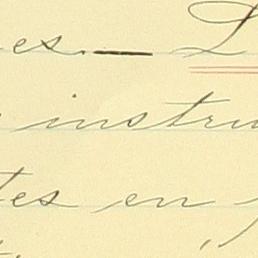 es. — L
instru
tes en